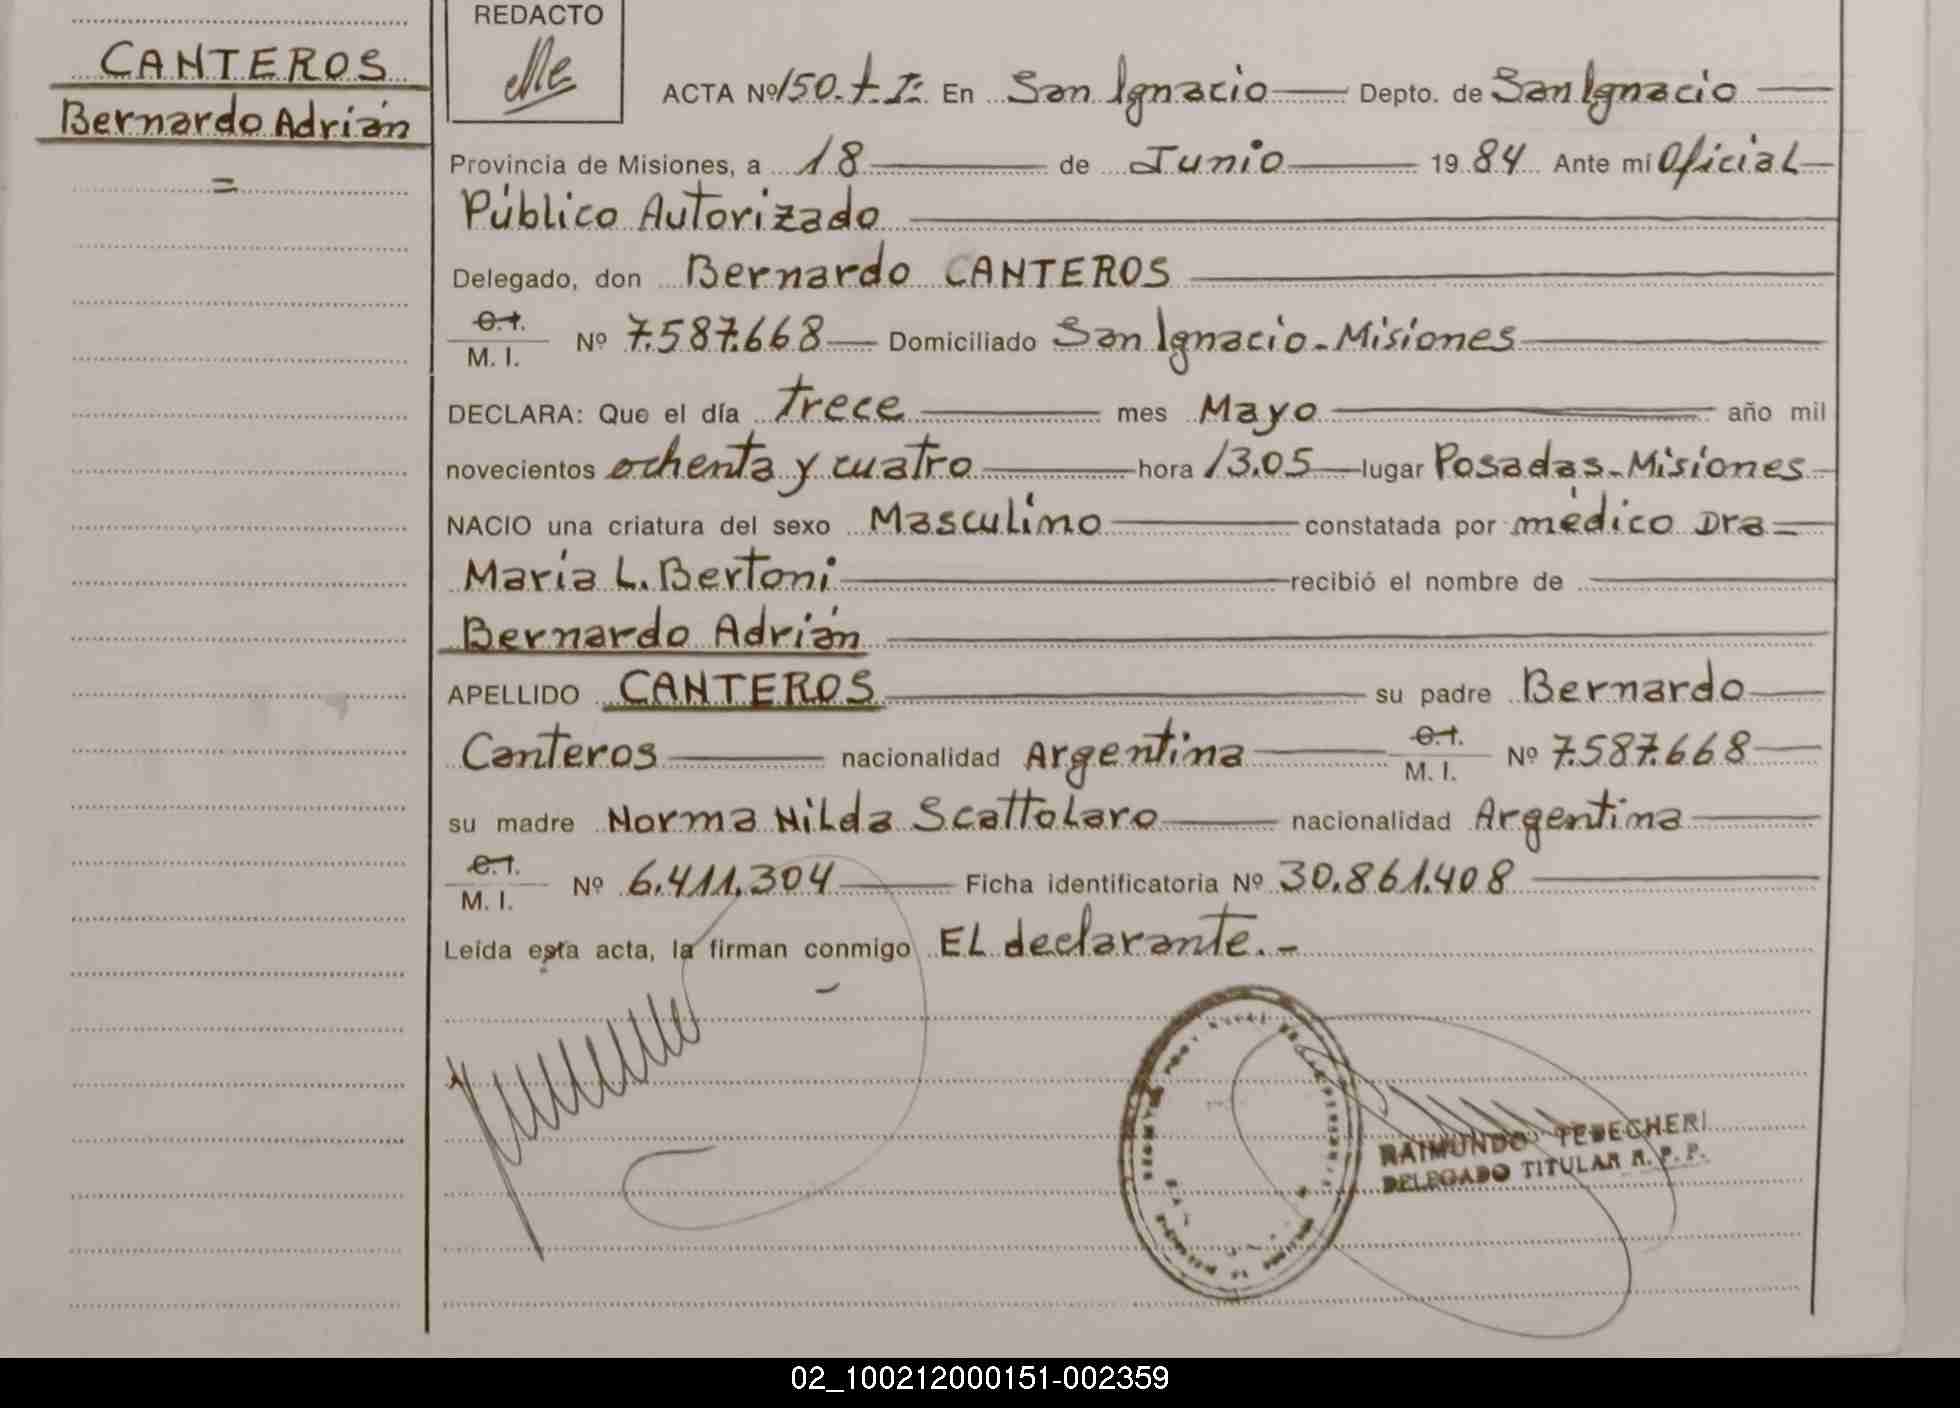 CANTEROS
Bernardo Adrián
=
REDACTO
ACTA Nº 150.t.I: En San Ignacio Depto. de San Ignacio
Provincia de Misiones, a 18 de Junio 1984 Ante mi Oficial
Público Autorizado
Delegado, don Bernardo CANTEROS
C.I.
M. I. Nº 7.587.668 Domiciliado San Ignacio - Misiones
DECLARA: Que el día trece mes Mayo año mil
novecientos ochenta y cuatro hora 13.05 lugar Posadas - Misiones
NACIO una criatura del sexo Masculino constatada por médico Dra
María L. Bertoni recibió el nombre de
Bernardo Adrián
APELLIDO CANTEROS su padre Bernardo
Canteros nacionalidad Argentina C.I. M. I. Nº 7.587.668
su madre Norma Nilda Scattolaro nacionalidad Argentina
C.I.
M. I. Nº 6.411.304 Ficha identificatoria Nº 30.861.408
Leída esta acta, la firman conmigo EL declarante.-
RAIMUNDO
DELEGADO TITULAR R. P. P.
02_100212000151-002359